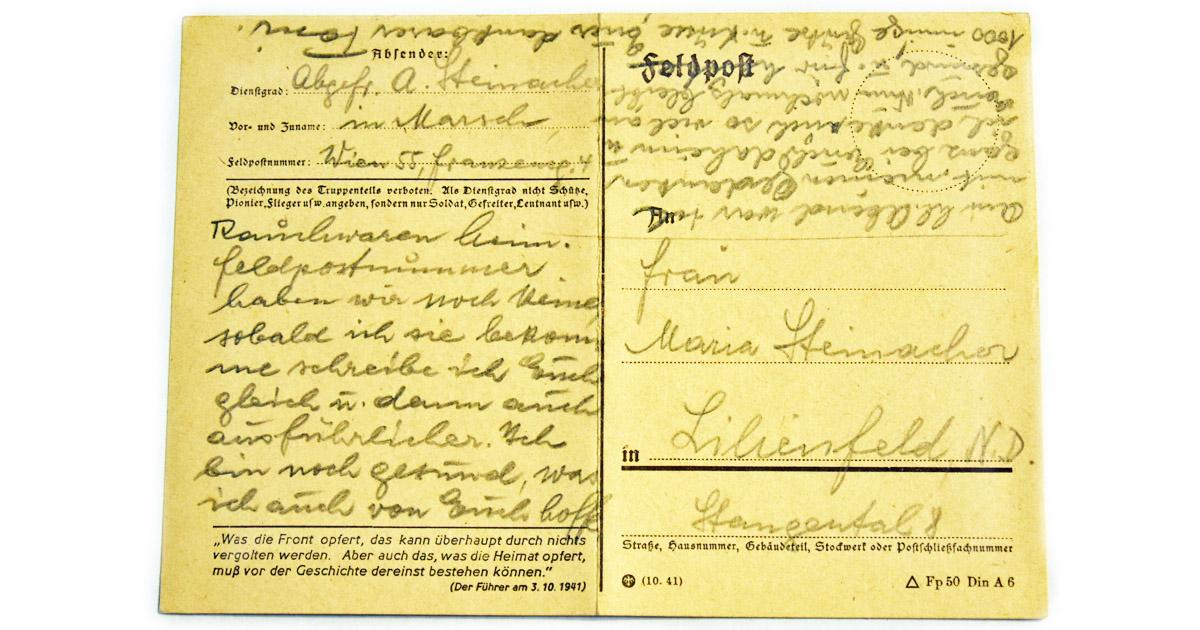 Absender:
Dienstgrad: Abgefr. A. Steinacher
Vor- und Zuname: in Marsch
Feldpostnummer: Wien 55, Franzeng. 4
(Bezeichnung des Truppenteils verboten. Als Dienstgrad nicht Schütze,
Pionier, Flieger usw. angeben, sondern nur Soldat, Gefreiter, Leutnant usw.)
Rauchwaren heim.
Feldpostnummer
haben wir noch keine
sobald ich sie bekom
me schreibe ich Euch
gleich u. dann auch
ausführlicher. Ich
bin noch gesund, was
ich auch von Euch hoffe
„Was die Front opfert, das kann überhaupt durch nichts
vergolten werden. Aber auch das, was die Heimat opfert,
muß vor der Geschichte dereinst bestehen können."
(Der Führer am 3. 10. 1941)
Feldpost
An
Frau
Maria Steinacher
in Lilienfeld, N.D
Stangental 8
Straße, Hausnummer, Gebäudeteil, Stockwerk oder Postschließfachnummer
(10. 41)
Fp 50 Din A 6
Am hl. Abend war ich
mit meinen Gedanken
ganz bei Euch daheim u.
ich denke auch so viel an
Euch. Nun nochmals bleibt
gesund u.
1000 innige Grüße u. Küsse Euer dankbarer Toni.